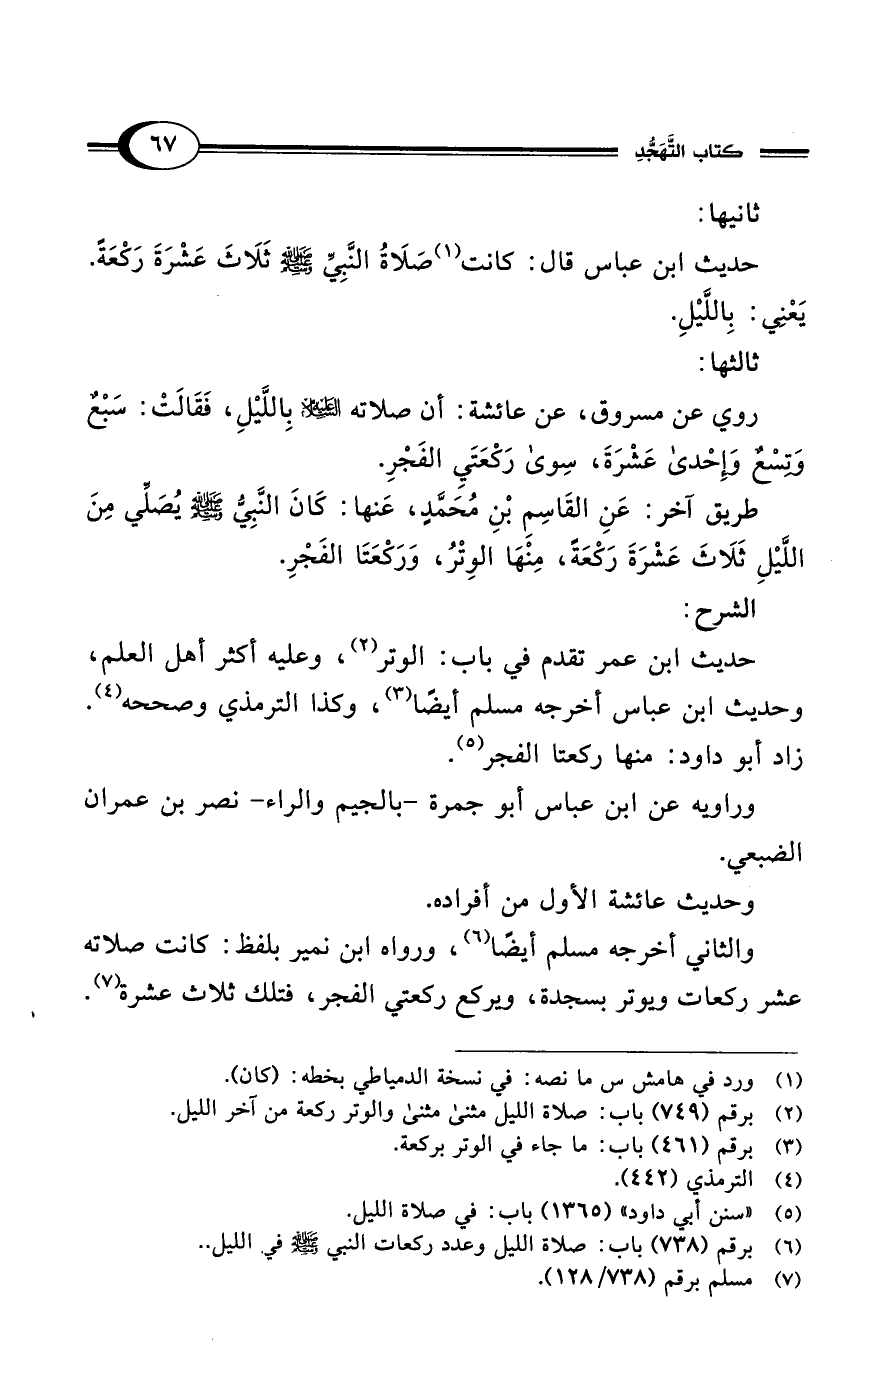 كتاب التَّهَجُّدِ
٦٧
ثانيها:
حديث ابن عباس قال: كانت(١) صَلَاةُ النَّبِيِّ ﷺ ثَلَاثَ عَشْرَةَ رَكْعَةً.
يَعْنِي: بِاللَّيْلِ.
ثالثها:
روي عن مسروق، عن عائشة: أن صلاته العَلَيْهِ السَّلَام بِاللَّيْلِ، فَقَالَتْ: سَبْعٌ
وَتِسْعٌ وَإِحْدىٰ عَشْرَةَ، سِوىٰ رَكْعَتَيِ الفَجْرِ.
طريق آخر: عَنِ القَاسِمِ بْنِ مُحَمَّدٍ، عَنها: كَانَ النَّبِيُّ ﷺ يُصَلِّي مِنَ
اللَّيْلِ ثَلَاثَ عَشْرَةَ رَكْعَةً، مِنْهَا الوِتْرُ، وَرَكْعَتَا الفَجْرِ.
الشرح:
حديث ابن عمر تقدم في باب: الوتر(٢)، وعليه أكثر أهل العلم،
وحديث ابن عباس أخرجه مسلم أيضًا(٣)، وكذا الترمذي وصححه(٤).
زاد أبو داود: منها ركعتا الفجر(٥).
وراويه عن ابن عباس أبو جمرة -بالجيم والراء- نصر بن عمران
الضبعي.
وحديث عائشة الأول من أفراده.
والثاني أخرجه مسلم أيضًا(٦)، ورواه ابن نمير بلفظ: كانت صلاته
عشر ركعات ويوتر بسجدة، ويركع ركعتي الفجر، فتلك ثلاث عشرة(٧).
(١) ورد في هامش س ما نصه: في نسخة الدمياطي بخطه: (كان).
(٢) برقم (٧٤٩) باب: صلاة الليل مثنىٰ مثنىٰ والوتر ركعة من آخر الليل.
(٣) برقم (٤٦١) باب: ما جاء في الوتر بركعة.
(٤) الترمذي (٤٤٢).
(٥) «سنن أبي داود» (١٣٦٥) باب: في صلاة الليل.
(٦) برقم (٧٣٨) باب: صلاة الليل وعدد ركعات النبي ﷺ في الليل..
(٧) مسلم برقم (١٢٨/٧٣٨).